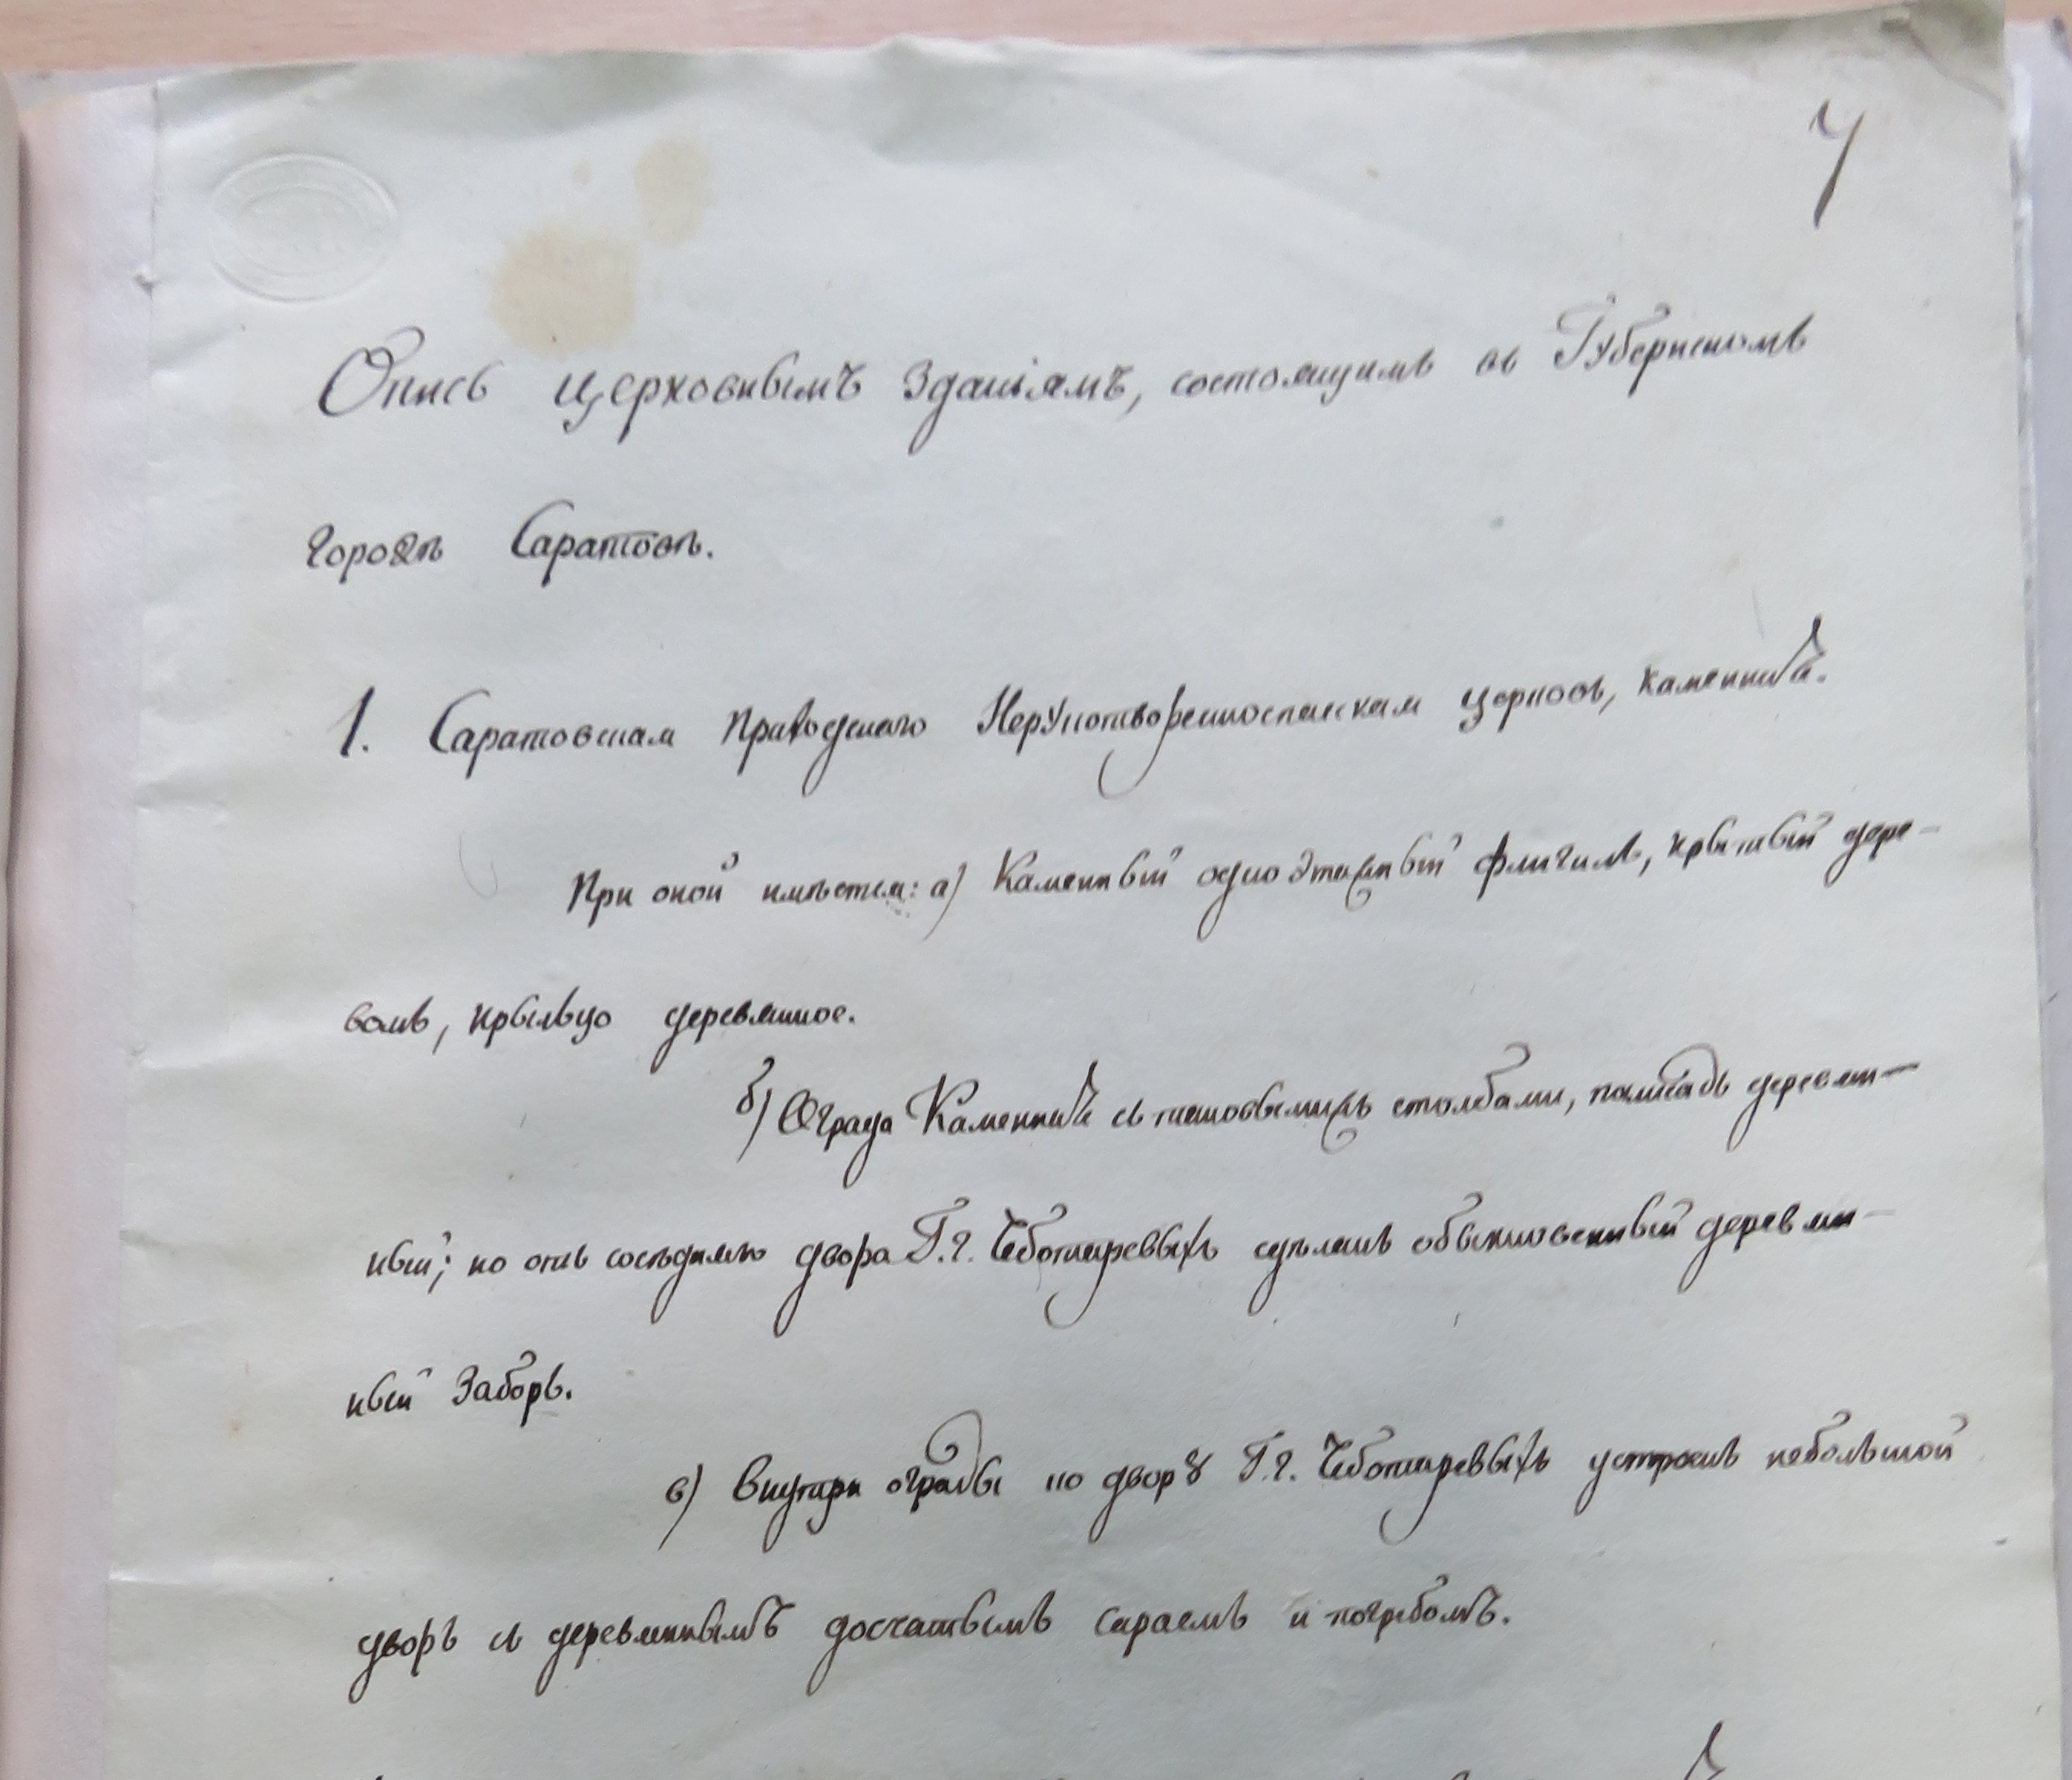 4
Опись церковнымъ зданіямъ, состоящимъ въ Губернскомъ
городѣ Саратовѣ.
1. Саратовская приходская Нерукотвореноспасская церковь, каменная.
При оной имѣется: а) Каменный одноэтажный флигиль, крытый дере-
вомъ, крыльцо деревянное.
б) Ограда Каменная съ столбами, деревян-
ный; но отъ сосѣдняго двора Г.г. Чеботаревыхъ сдѣланъ обыкновенный деревян-
ный заборъ.
в) Внутри ограды по двору Г.г. Чеботаревыхъ устроенъ небольшой
дворъ съ деревяннымъ досчатымъ сараемъ и погребомъ.